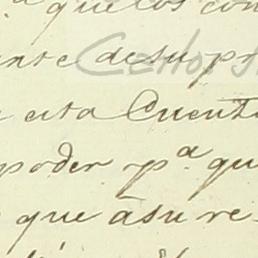 que los con
ente de su pro
esta Cuenta
poder p.ª qu
que á su re-